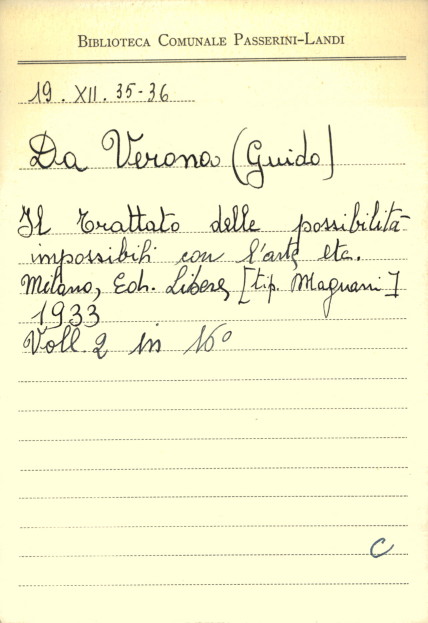 BIBLIOTECA COMUNALE PASSERINI-LANDI
19. XII. 35-36
Da Verona (Guido)
Il trattato delle possibilità
impossibili con l'arte etc.
Milano, Edh. Libere, [tip. Magnani]
1933
Voll. 2 in 16°
C